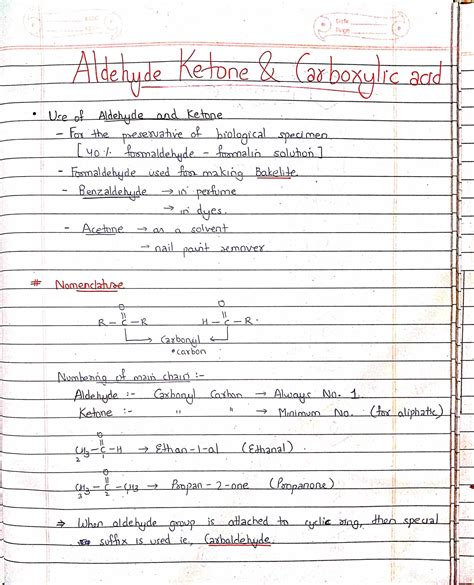 Date
Page
Aldehyde Ketone & Carboxylic acid
• Use of Aldehyde and Ketone
- For the preservative of biological specimen
[40% formaldehyde - formalin solution]
- Formaldehyde used for making Bakelite.
- Benzaldehyde → in perfume
→ in dyes.
- Acetone → as a solvent
→ nail paint remover
# Nomenclature
O O
R - C - R H - C - R.
Carbonyl
• carbon
Numbering of main chain :-
Aldehyde :- Carbonyl Carbon → Always No. 1.
Ketone :- " " → Minimum No. (for aliphatic)
O
CH3 - C - H → Ethan-1-al (Ethanal)
2 1
O
CH3 - C - CH3 → Propan-2-one (Propanone)
3 2 1
⇒ When aldehyde group is attached to cyclic ring, then special
suffix is used i.e., Carbaldehyde.